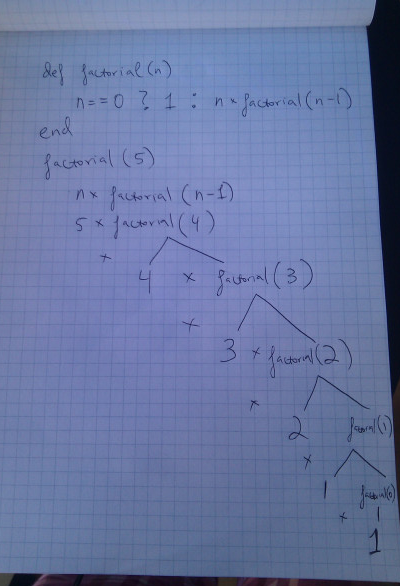 def factorial(n)
n==0 ? 1 : n × factorial(n-1)
end
factorial(5)
n × factorial (n-1)
5 × factorial(4)
×
4 × factorial(3)
×
3 × factorial(2)
×
2 factorial(1)
×
1 factorial(0)
× 1
1